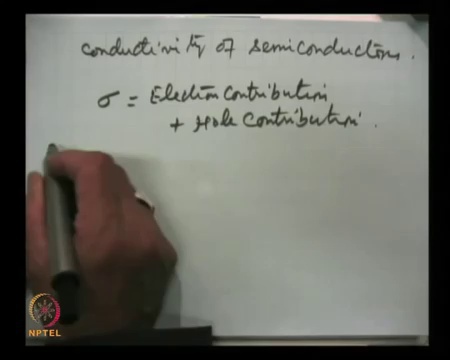 conductivity of semiconductors.
σ = Electron contribution
+ Hole contribution.
NPTEL